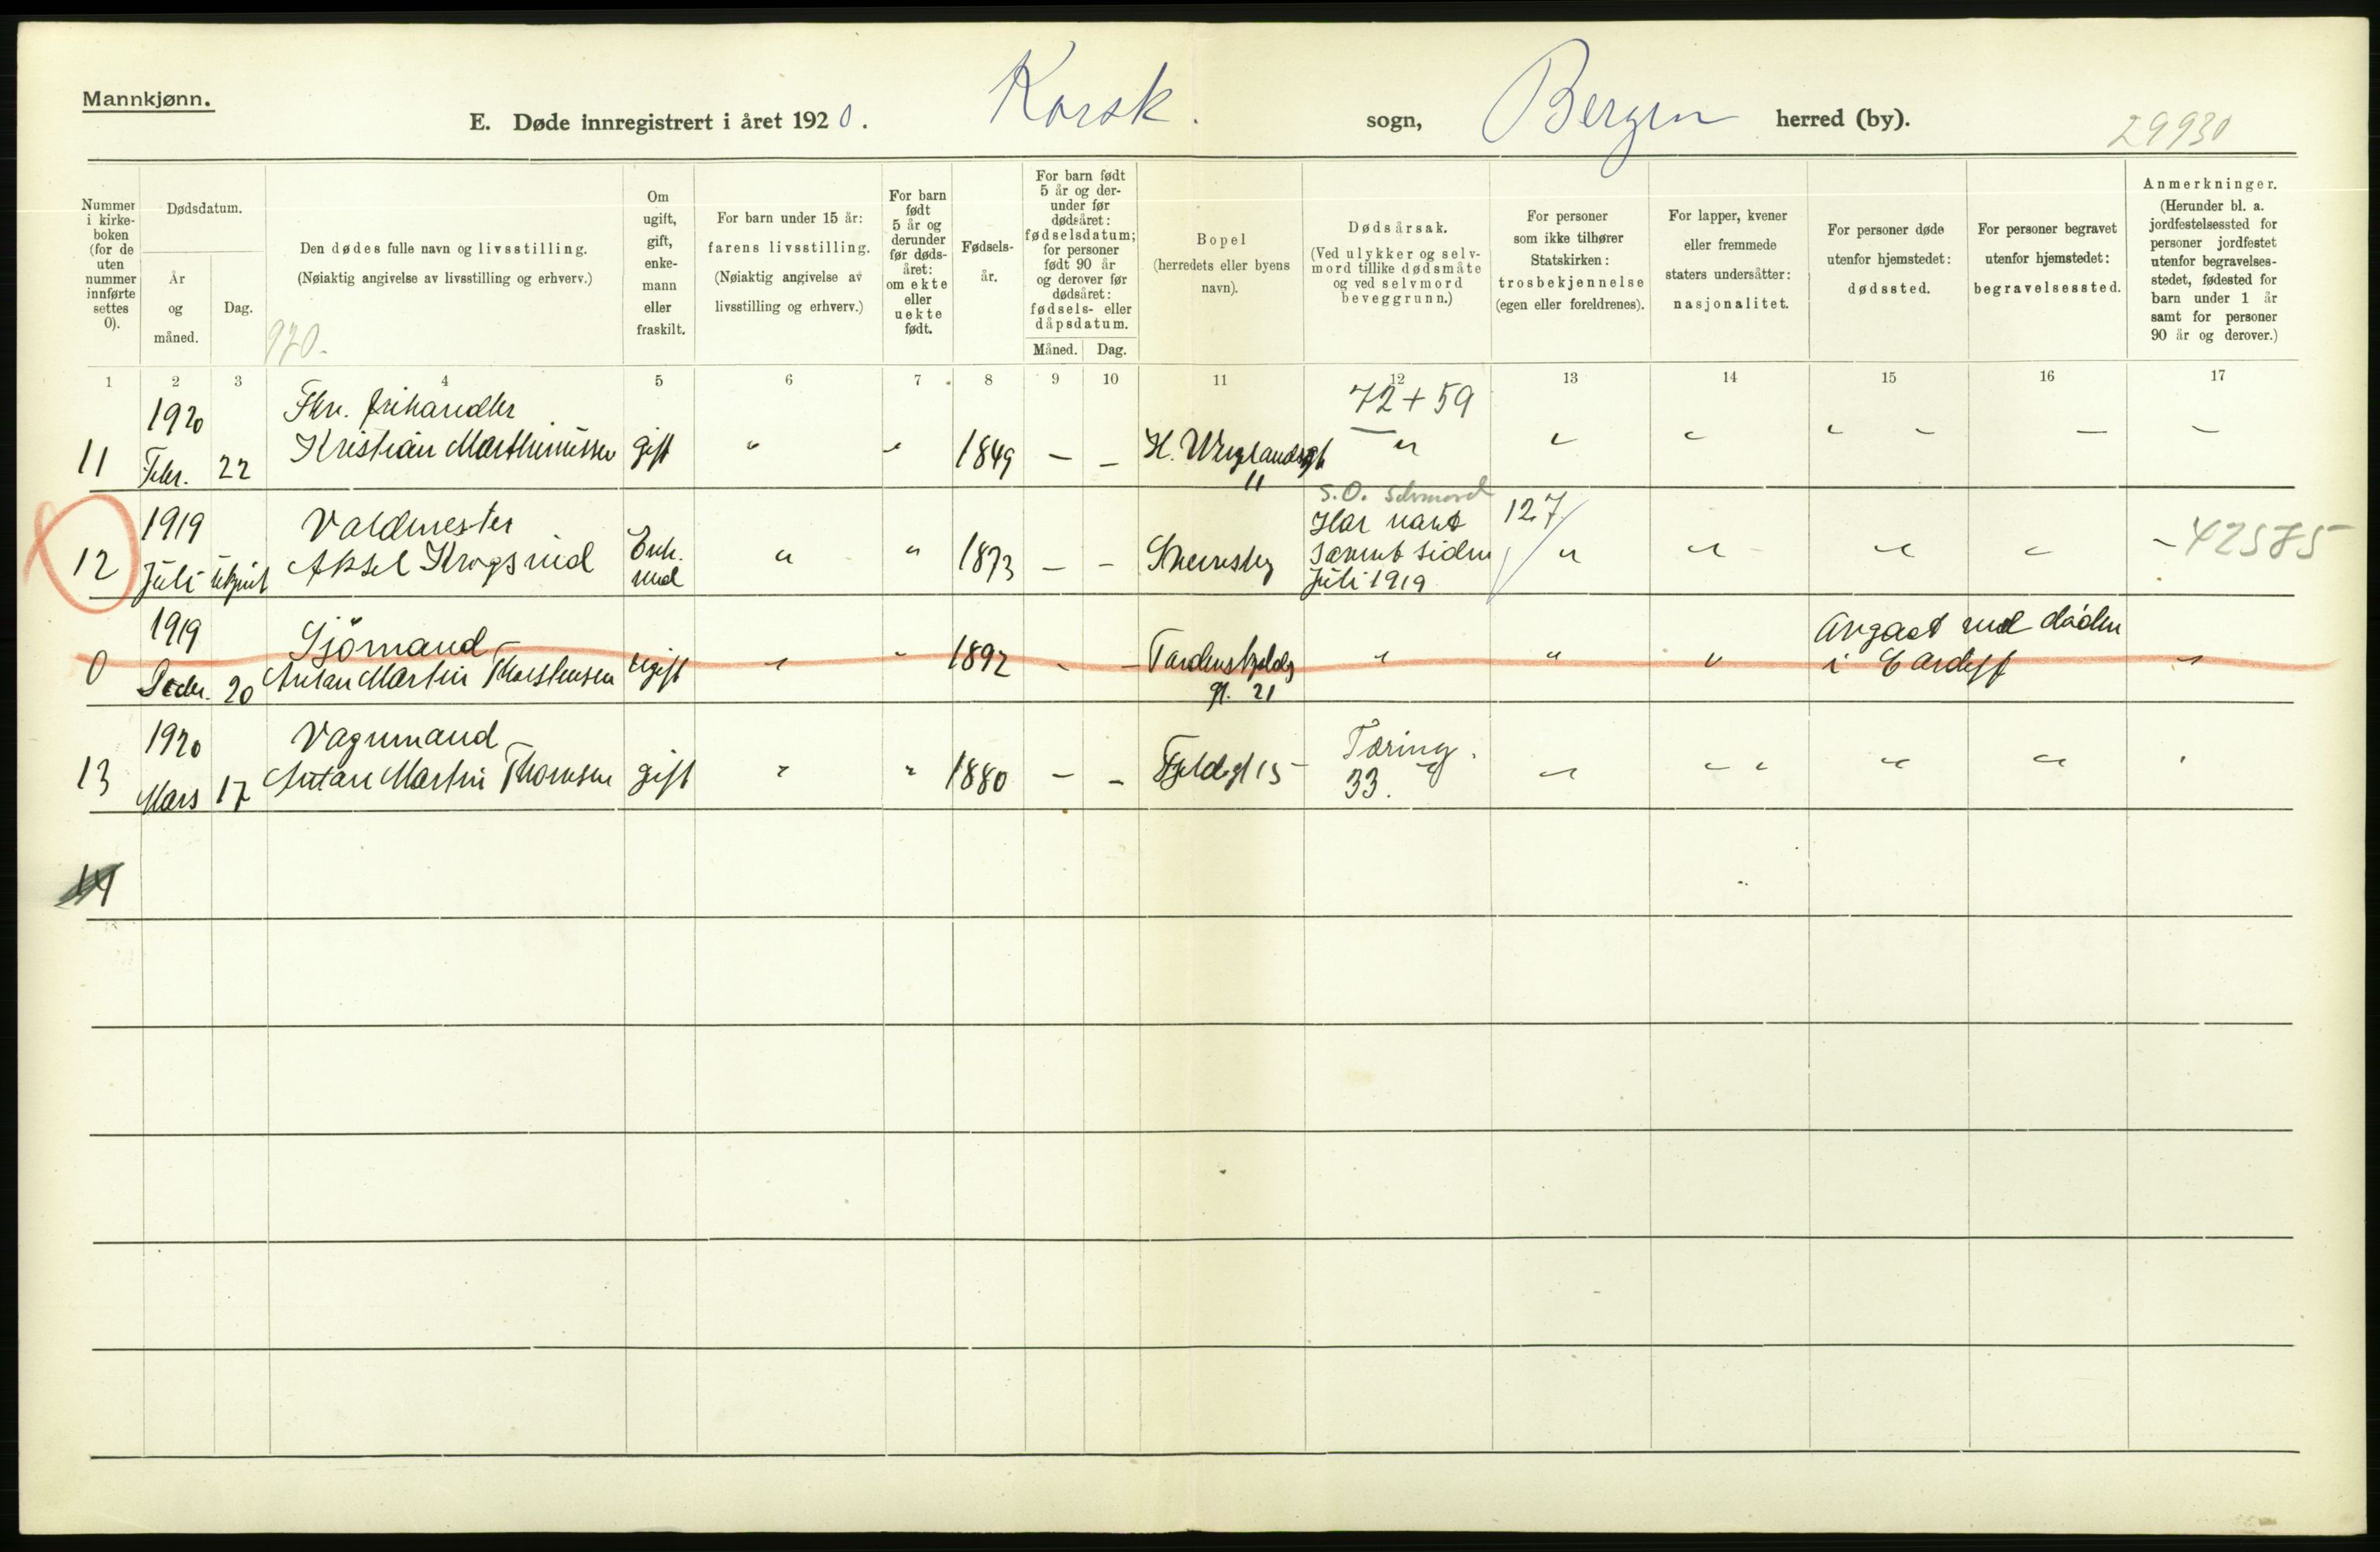 Mannkjønn.
E. Døde innregistrert i året 1920. Korsk. sogn, Bergen herred (by). 29930
Nummer i kirke-boken (for de uten nummer innførte settes 0).
Dødsdatum.
År og måned.
Dag.
Den dødes fulle navn og livsstilling.
(Nøiaktig angivelse av livsstilling og erhverv.)
920.
Om ugift, gift, enke-mann eller fraskilt.
For barn under 15 år:
farens livsstilling.
(Nøiaktig angivelse av livsstilling og erhverv.)
For barn født 5 år og derunder før døds-året: om ekte eller uekte født.
Fødsels-år.
For barn født 5 år og der-under før dødsåret: fødselsdatum; for personer født 90 år og derover før dødsåret: fødsels- eller dåpsdatum.
Måned. Dag.
Bopel
(herredets eller byens navn).
Dødsårsak.
(Ved ulykker og selv-mord tillike dødsmåte og ved selvmord beveggrunn.)
For personer som ikke tilhører Statskirken: trosbekjennelse (egen eller foreldrenes).
For lapper, kvener eller fremmede staters undersåtter: nasjonalitet.
For personer døde utenfor hjemstedet: dødssted.
For personer begravet utenfor hjemstedet: begravelsessted.
Anmerkninger.
(Herunder bl. a. jordfestelsessted for personer jordfestet utenfor begravelses-stedet, fødested for barn under 1 år samt for personer 90 år og derover.)
1 2 3 4 5 6 7 8 9 10 11 12 13 14 15 16 17
1920 72+59
11 Febr. 22 Kristian Marthinussen gift " " 1849 – – H. Werglandsgt " " " " " – –
11
1919 S.O. Selvmord 127
12 Juli Aksel Krogsrud Enk. " " 1873 – – Har vært " " " " – 42575
mand savnet siden
Juli 1919
1919 Sjömand Avgaat ved døden
0 Decbr. 20 Anton Martin Thorstensen ugift " " 1892 - – Tordenskjolds " " " i Cardiff "
gt. 21
1920 Vognmand Tæring.
13 Mars 17 Anton Martin Thomsen gift " " 1880 – – Fjeldgt 15 33. " " " " " "
14